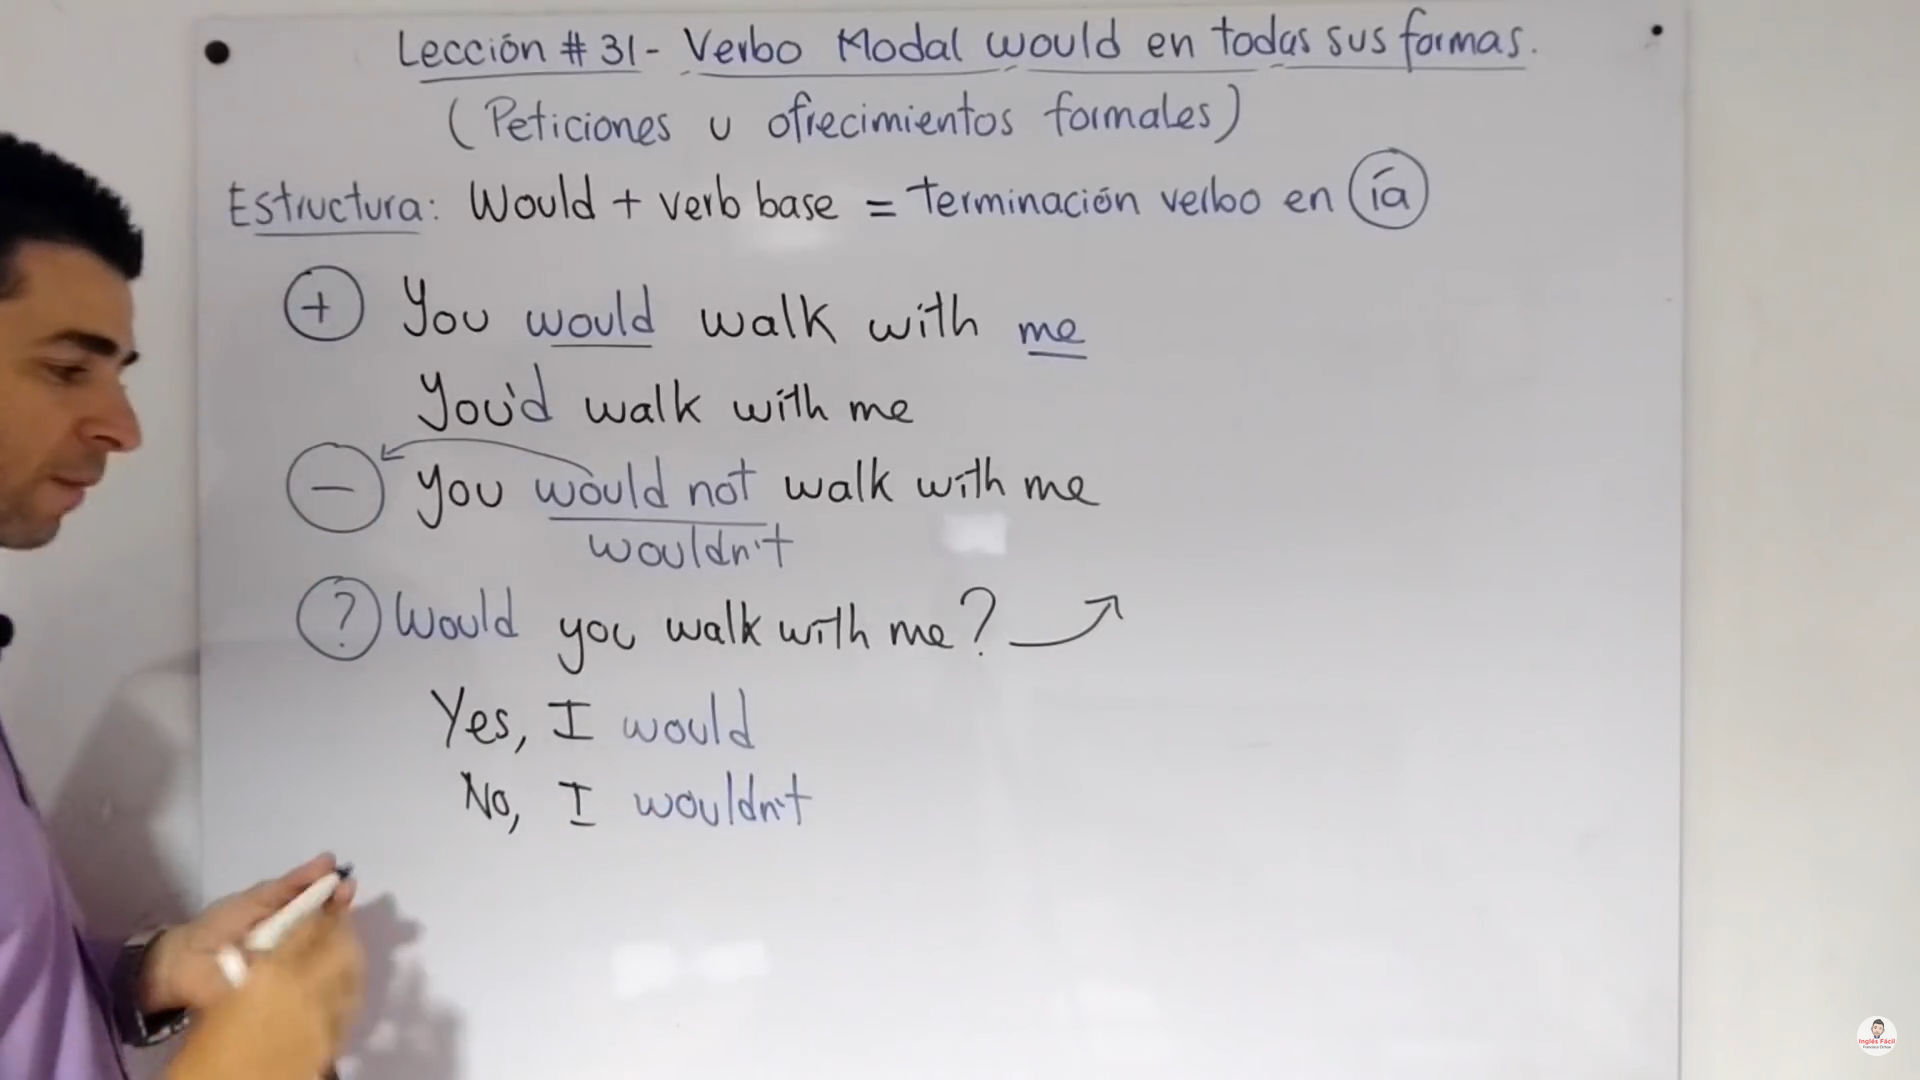 Lección # 31 - Verbo Modal would en todas sus formas.
(Peticiones u ofrecimientos formales)
Estructura: Would + verb base = terminación verbo en ía
+ You would walk with me
You'd walk with me
- you would not walk with me
wouldn't
? Would you walk with me?
Yes, I would
No, I wouldn't
Inglés Fácil